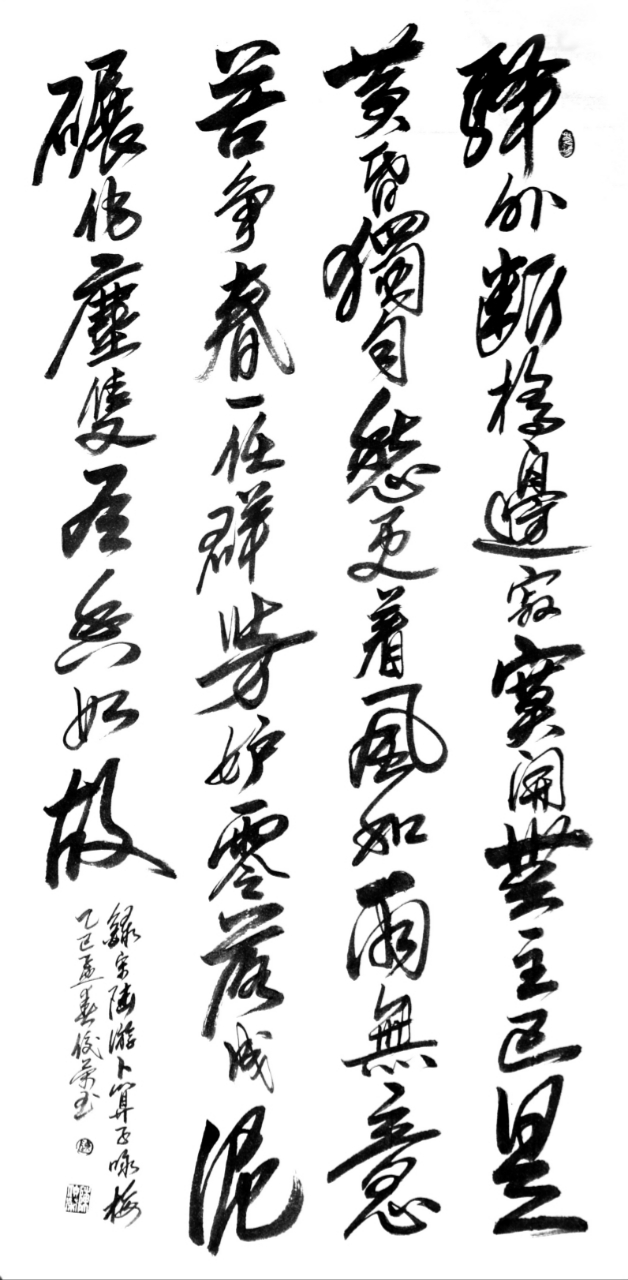 驛外斷橋邊寂寞開無主已是
黄昏獨自愁更着風和雨無意
苦争春一任群芳妒零落成泥
碾作塵隻有香如故
錄宋陸游卜算子咏梅
乙巳孟春俊荣书